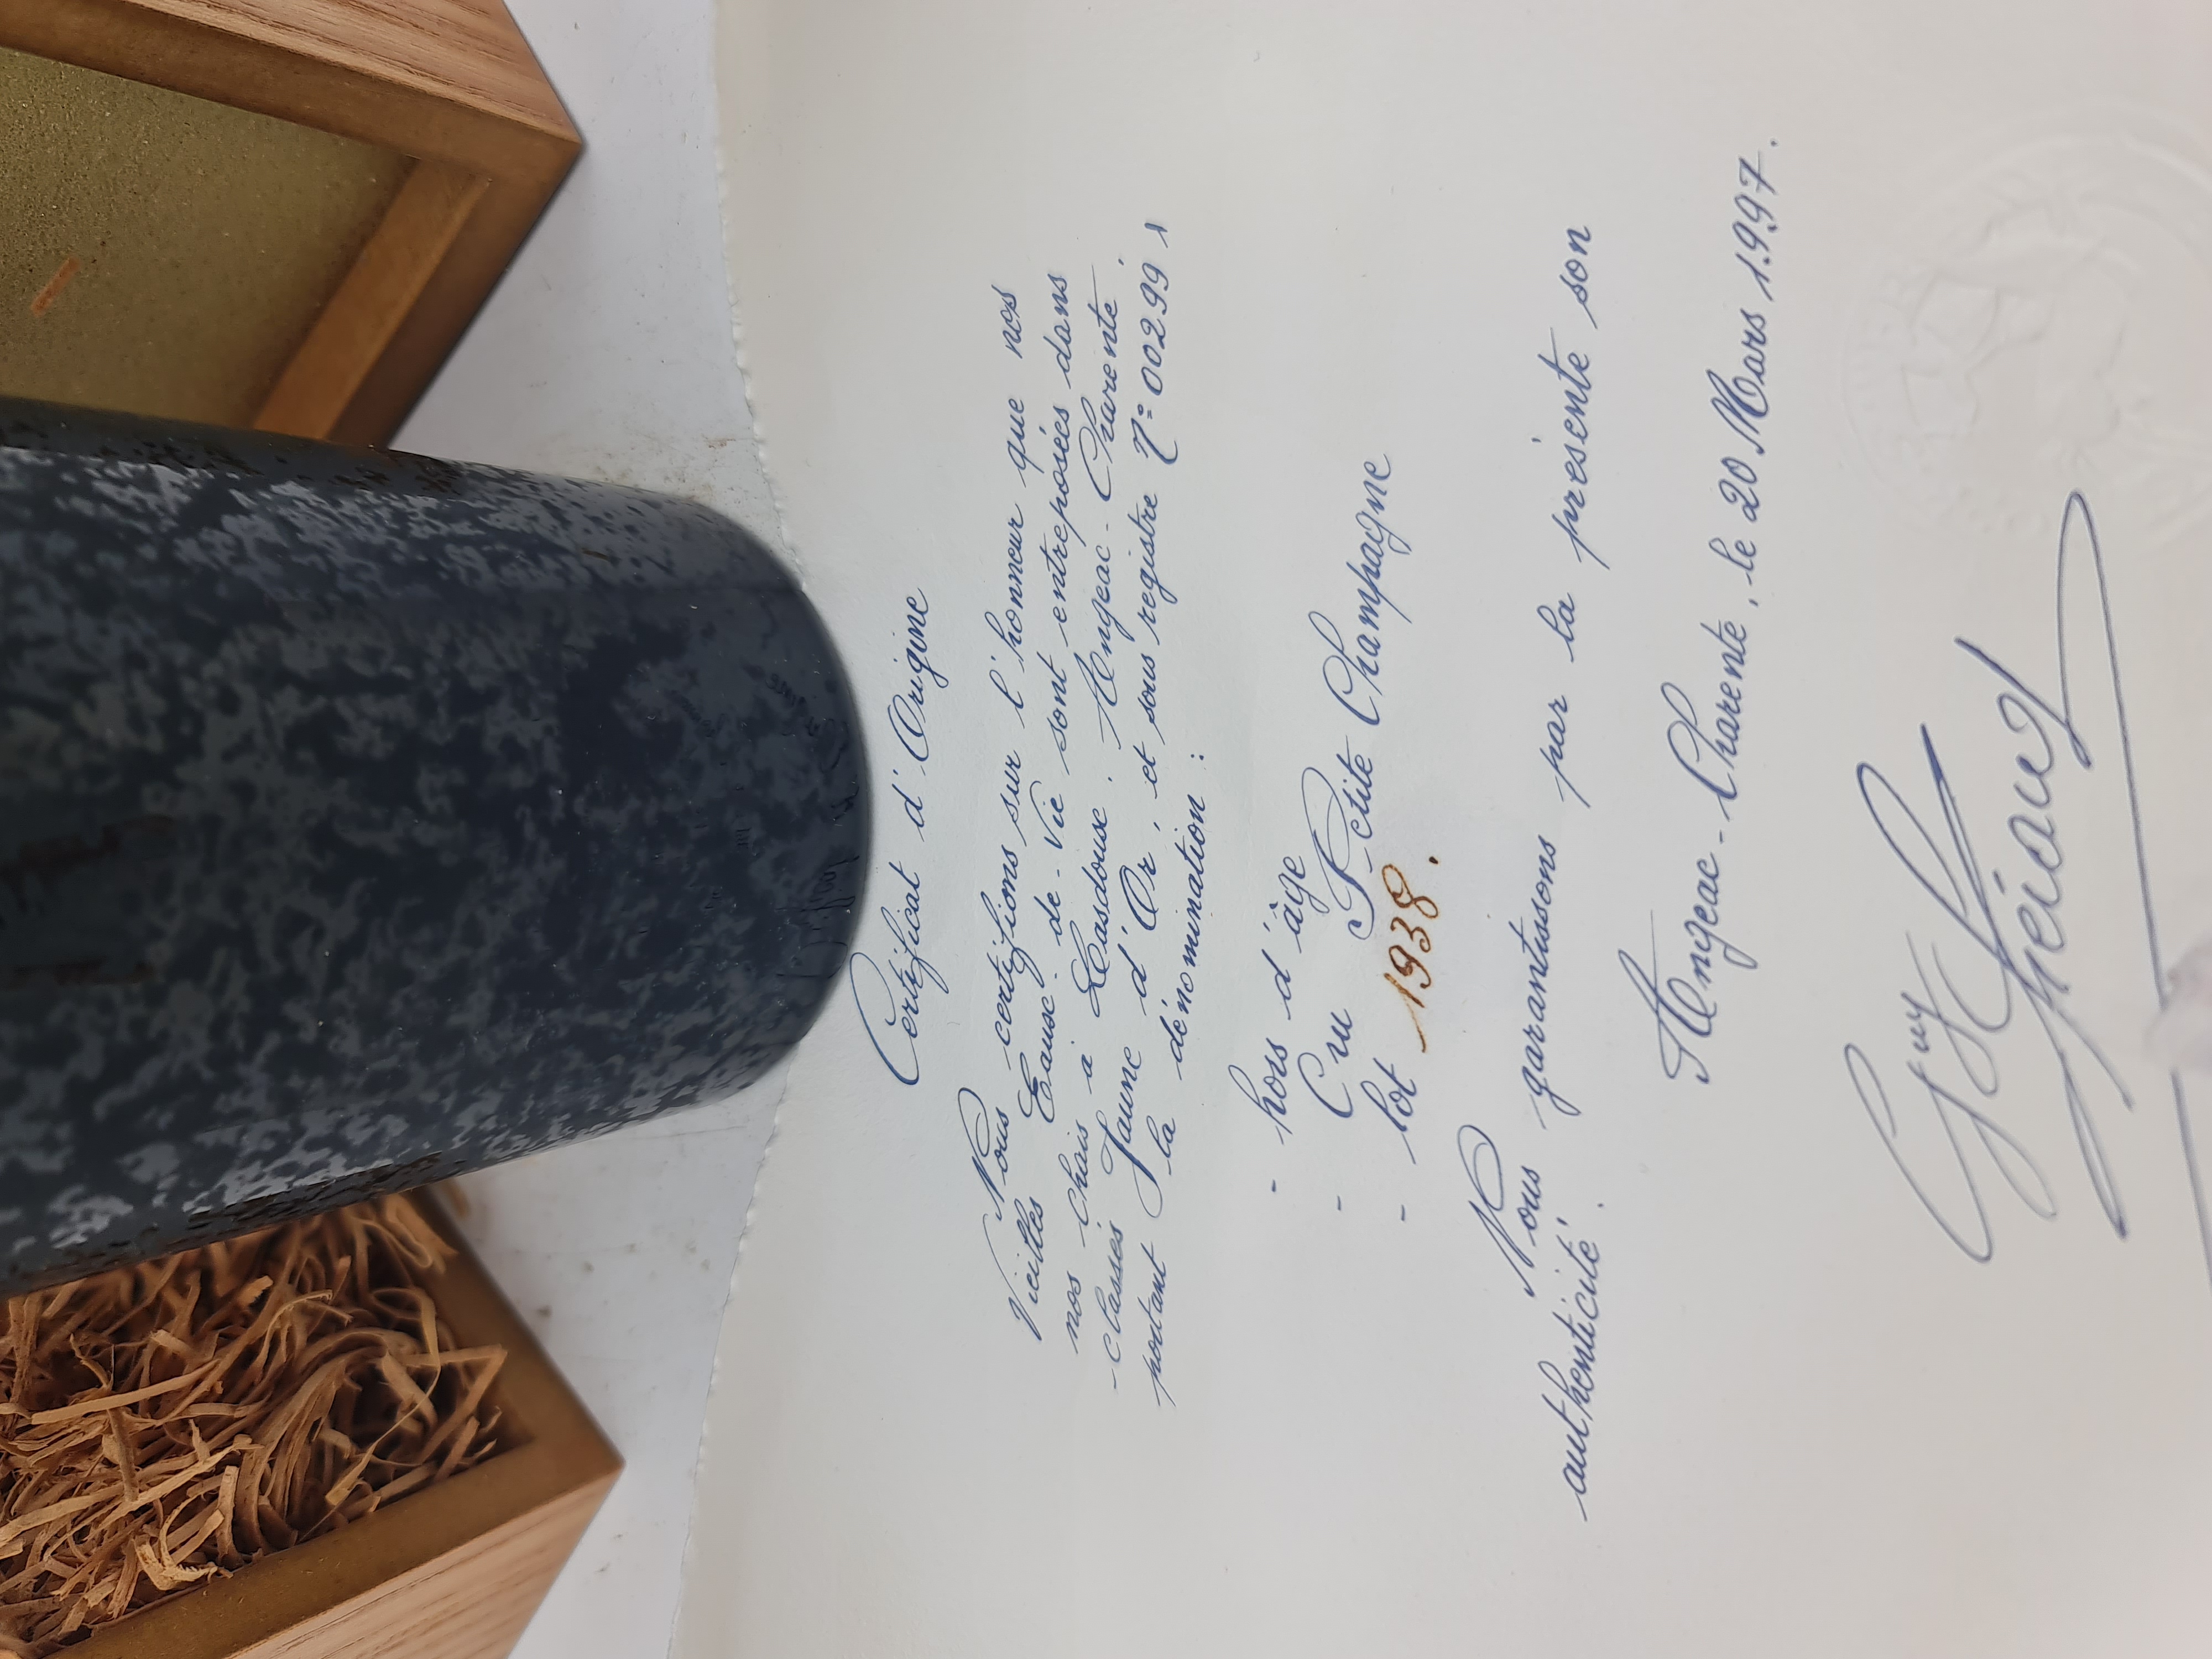 Certificat d'Origine
Nous certifions sur l'honneur que nos
Vieilles Eause-de-Vie sont entreposées dans
nos chais à Lasdouse. Angeac-Charente.
classés Jaune d'Or, et sous registre N° 00299 1
portant la dénomination :
- hors d'âge
- Cru Petite Champagne
- lot 1938.
Nous garantissons par la présente son
authenticité.
Angeac-Charente, le 20 Mars 1.997.
Guy